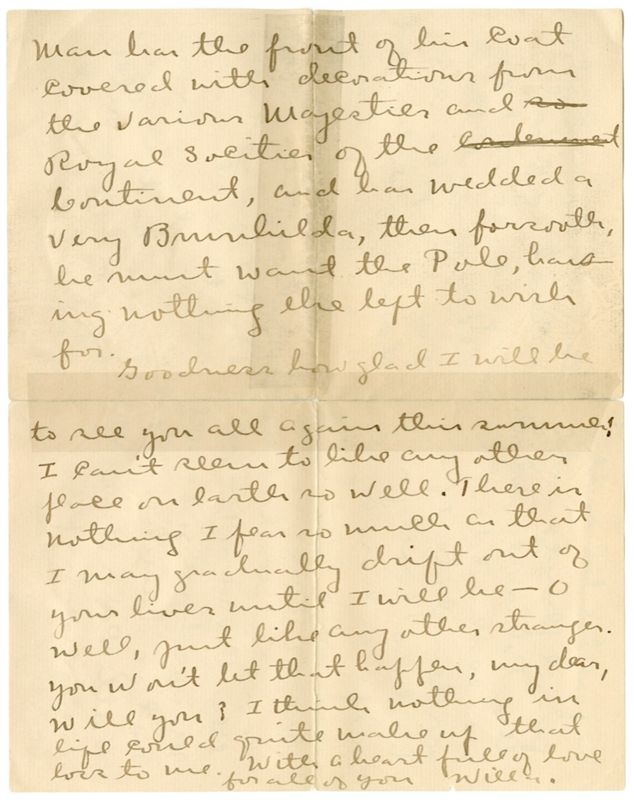 Man has the front of his coat
covered with decorations from
the various Majesties and so
Royal Socities of the
Continent, and has wedded a
very Brunhilda, then forsooth,
he must want the Pole, hav-
ing nothing else left to wish
for.
Goodness how glad I will be
to see you all again this summer!
I can't seem to like any other
place on earth so well. There is
nothing I fear so much as that
I may gradually drift out of
your lives until I will be — O
well, just like any other stranger.
you won't let that happen, my dear,
will you? I think nothing in
life could quite make up that
loss to me. With a heart full of love
for all of you Willa.